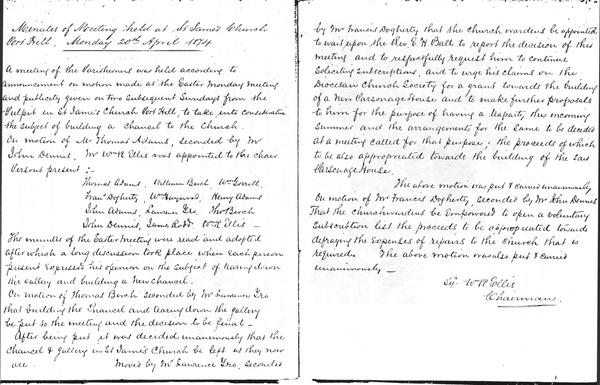 Minutes of Meeting held at St James's Church
Port Hill, Monday 20th April 1874.
A meeting of the Parishioners was held according to
announcement on motion made at the Easter Monday Meeting
and publicity given on two Subsequent Sundays from the
Pulpit in St James Church Port Hill, to take into consideration
the subject of building a chancel to the Church.
On motion of Mr Thomas Adams, seconded by Mr
John Dennis, Mr Wm R Ellis was appointed to the chair.
Persons present :-
Thomas Adams, William Burch, Wm Gorrill
Frans Dogherty, Wm Haywood, Henry Adams
John Adams, Lawrence Gro, Thos Burch
John Dennis, James Rodd, Wm R Ellis —
The minutes of the Easter Meeting were read and adopted
after which a long discussion took place when each person
present Expressed his opinion on the subject of tearing down
the gallery and building a New Chancel.
On motion of Thomas Burch seconded by Mr Lawrence Gro
that building the Chancel and tearing down the gallery
be put to the meeting and the decision to be final —
After being put it was decided unanimously that the
Chancel & gallery in St James's Church be left as they now
are. Moved by Mr Lawrence Gro, seconded
by Mr Francis Dogherty that the Church wardens be appointed
to wait upon the Rev. E. H. Ball to report the decision of this
meeting and to respectfully request him to continue
Soliciting Subscriptions, and to urge his claims on the
Diocesan Church Society for a grant towards the building
of a New Parsonage House and to make further proposals
to him for the purpose of having a tea party, the incoming
Summer and the arrangements for the Same to be decided
at a meeting called for that purpose; the proceeds of which
to be also appropriated towards the building of the said
Parsonage House.
The above motion was put & carried unanimously
On motion of Mr Francis Dogherty, seconded by Mr John Dennis
That the Churchwardens be Empowered to open a voluntary
Subscription list the proceeds to be appropriated towards
defraying the Expenses of repairs to the Church that is
required. The above motion was also put & carried
unanimously —
Sg. Wm R Ellis
Chairman.